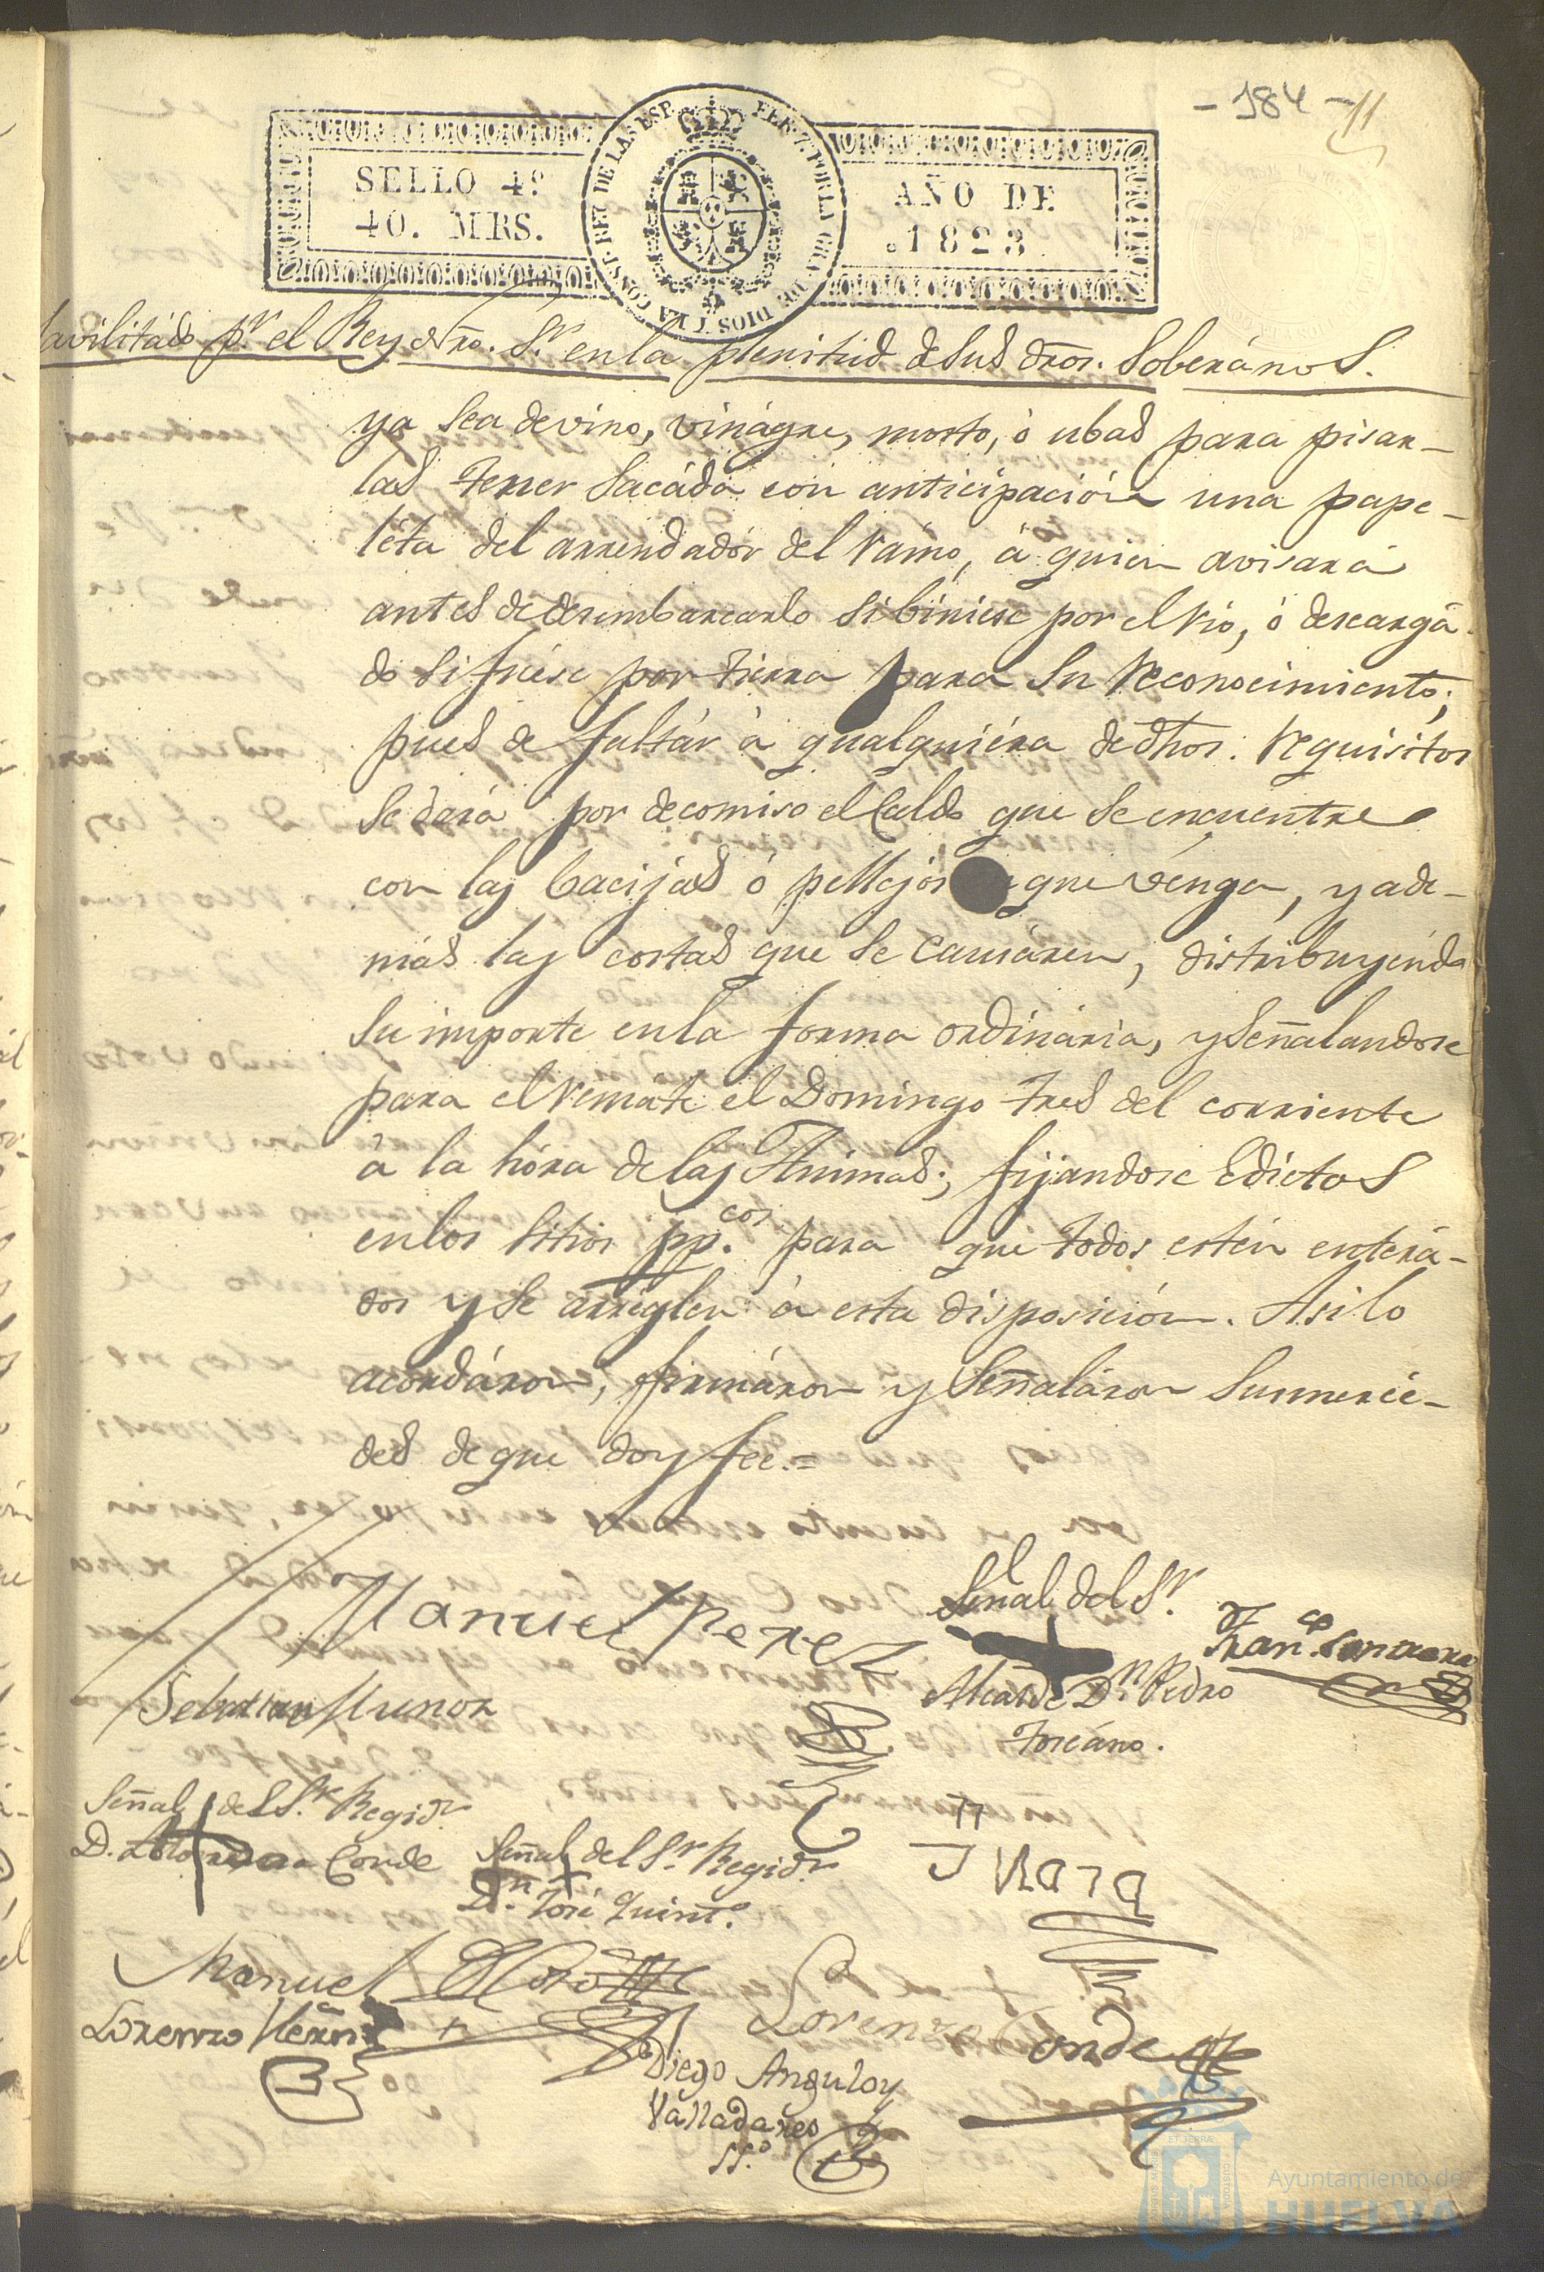 - 184 - 11
SELLO 4º
40. MRS.
FER. 7. POR LA GRA. DE DIOS Y LA CONST. REY DE LAS ESP.
AÑO DE
1823.
avilitádo pr. el Rey Nro. Sr. en la plenitud de Sus dros. Soberános.
ya Sea de vino, vinágre, mosto, ó ubas para pisar-
las tener Sacáda con anticipación una pape-
léta del arrendadór del rámo, á quien avisará
antes de desembarcarlo Si biniese por el rio, ó descargá-
do Si fuése por tierra para Su reconocimiento;
pues de faltár á qualquiéra de dhos. requisitos
Se dará por decomiso el Caldo que Se encuentre
con las bacijas ó pellejos que vénga, y ade-
más las costas que Se causáren, distribuyéndo
Su importe en la forma ordinária, y Señalandose
para el remáte el Domingo tres del corriente
á la hóra de las Ánimas; fijandose Edictos
en los Sitios pp.cos para que todos estén enterá-
dos y Se arréglen á esta disposición. Asi lo
acordáron, firmáron y Señaláron Sus merce-
des de que doy fee.=
Manuel Perez
Señal del Sr.
Alcalde Dn. Pedro
Toscáno.
Franco. Contrera
Sebastian Munoz
Señal del Sr. Regidr.
D. Conde
Señal del Sr. Regidr.
Dn. José Quint.o
Manuel
Lorenzo
Lorenzo Conde
Diego Angulo y
Valladares
SS.o
Ayuntamiento de
HUELVA